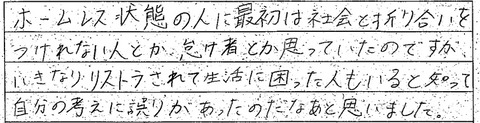 ホームレス状態の人に最初は社会と折り合いを
つけれない人とか、怠け者とか思っていたのですが、
いきなりリストラされて生活に困った人もいると知って
自分の考えに誤りがあったのだなあと思いました。